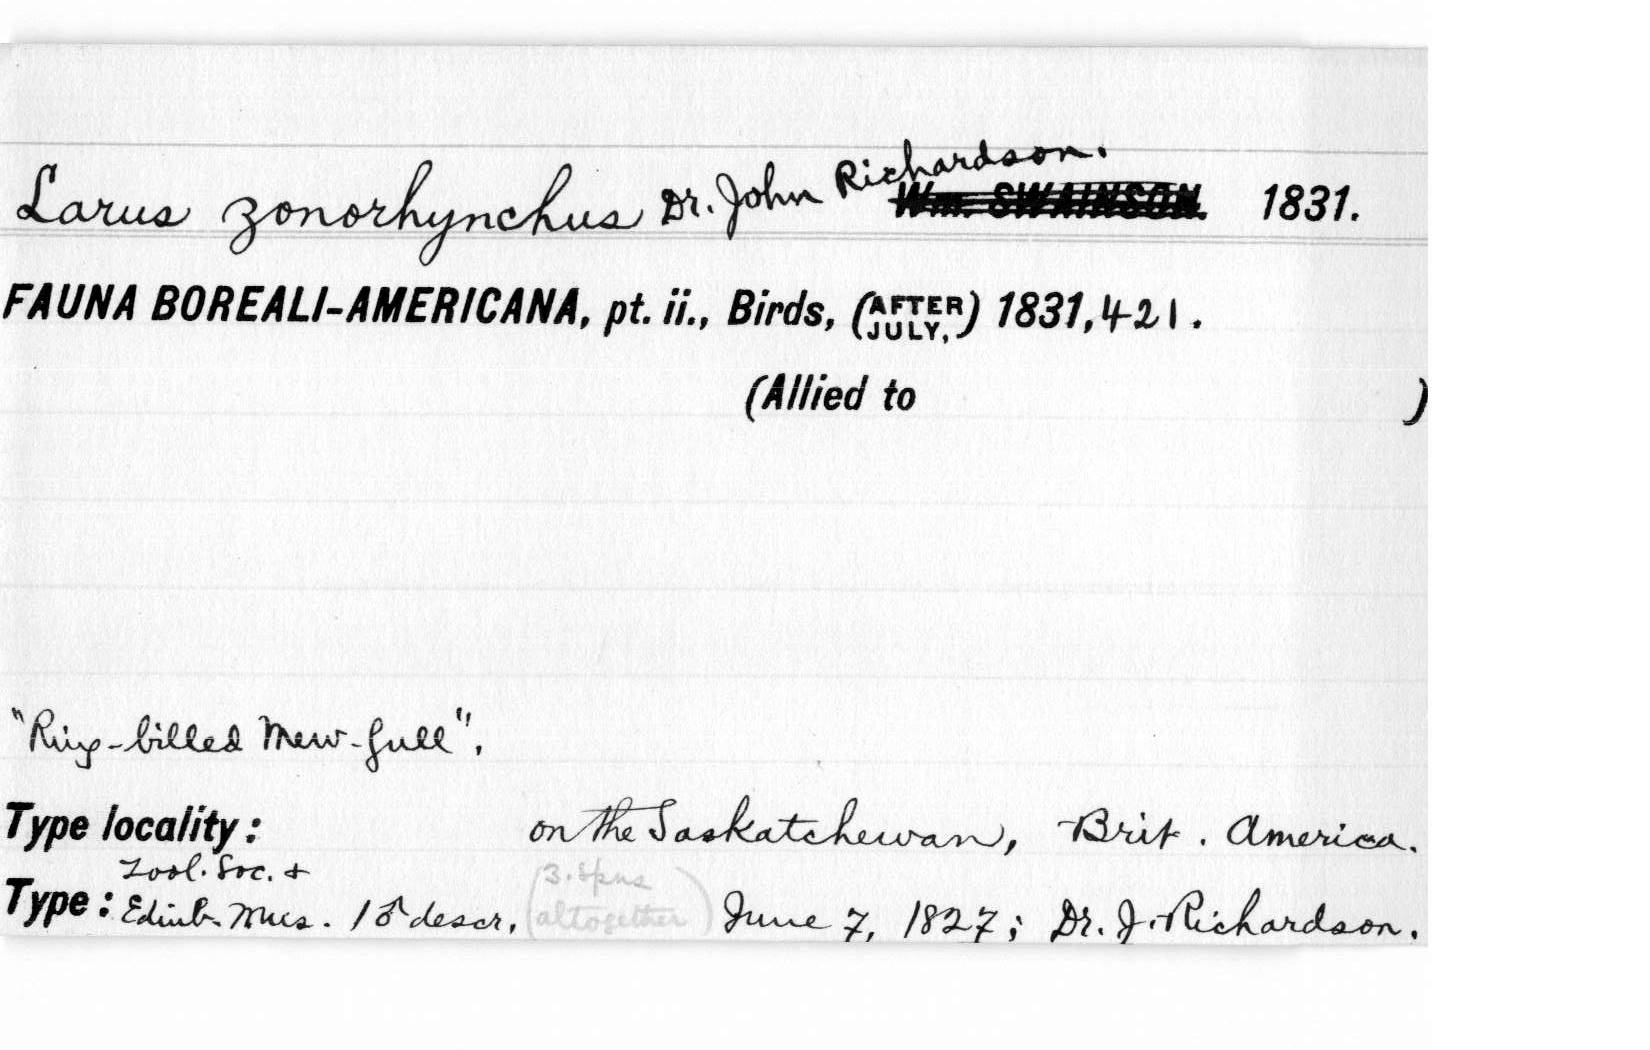 Larus zonorhynchus Dr. John Richardson. Wm. SWAINSON. 1831.
FAUNA BOREALI-AMERICANA, pt. ii., Birds, (AFTER JULY,) 1831, 421.
(Allied to )
"Ring-billed Mew-gull".
Type locality: on the Saskatchewan, Brit. America.
Zool. Soc. &
Type: Edinb. Mus. 1♂ descr. (3. spns altogether) June 7, 1827; Dr. J. Richardson.